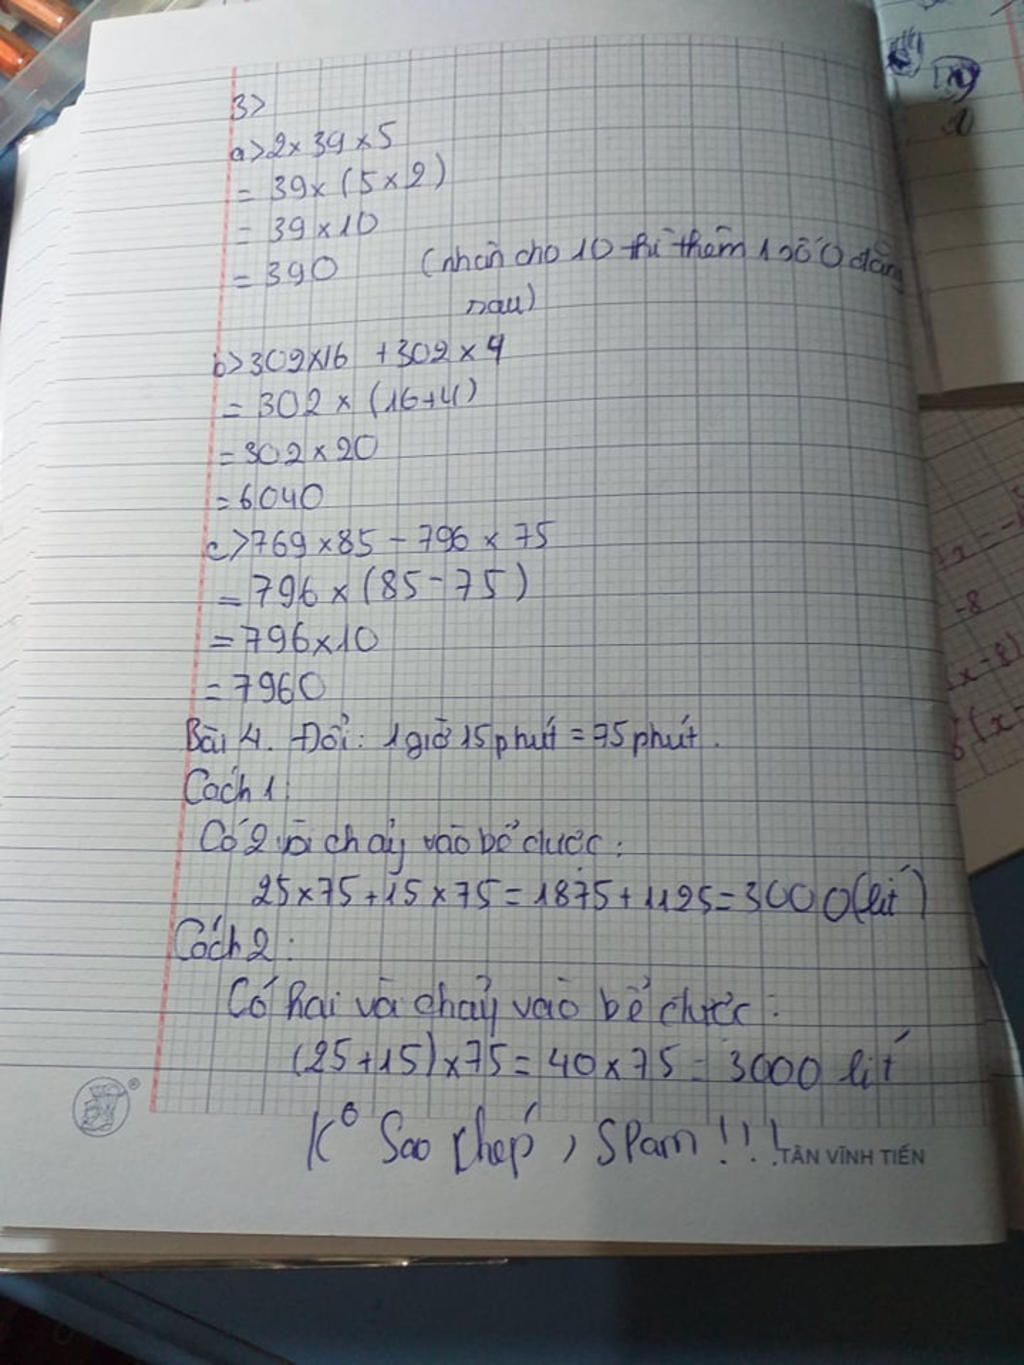 3>
a> 2 × 39 × 5
= 39 × (5 × 2)
= 39 × 10
= 390 (nhân cho 10 thì thêm 1 số 0 đằng
sau)
b> 302 × 16 + 302 × 4
= 302 × (16+4)
= 302 × 20
= 6040
c> 769 × 85 - 796 × 75
= 796 × (85 - 75)
= 796 × 10
= 7960
Bài 4. Đổi: 1 giờ 15 phút = 75 phút.
Cách 1:
Có 2 vòi chảy vào bể được:
25 × 75 + 15 × 75 = 1875 + 1125 = 3000 (lít)
Cách 2:
Có hai vòi chảy vào bể được:
(25 + 15) × 75 = 40 × 75 = 3000 lít
K° Sao chép, Spam!!!
TÂN VĨNH TIẾN
-8